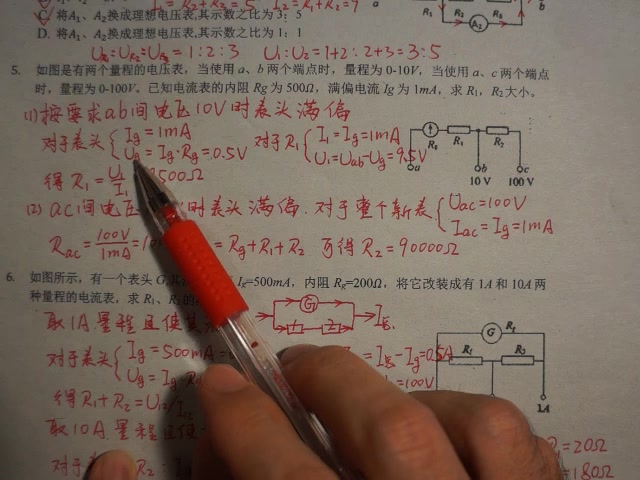 C 将A₁、A₂换成理想电压表,其示数之比为3:5
D. 将A₁、A₂换成理想电压表,其示数之比为1:1
U_R₁=U_R₂=U_R₃=1:2:3 U₁:U₂=1+2:2+3=3:5
R₁ R₂ A₂ b
5. 如图是有两个量程的电压表，当使用a、b两个端点时，量程为0-10V，当使用a、c两个端点
时，量程为0-100V。已知电流表的内阻Rg为500Ω，满偏电流Ig为1mA，求R₁，R₂大小。
(1)按要求ab间电压10V时表头满偏
对于表头{Ig=1mA Ug=Ig·Rg=0.5V 对于R₁{I₁=Ig=1mA U₁=Uab-Ug=9.5V
Rg R₁ R₂
a b c
10 V 100 V
得R₁=U₁/I₁ 9500Ω
(2) ac间电压 时表头满偏.对于整个新表{Uac=100V Iac=Ig=1mA
Rac=100V/1mA=10 =Rg+R₁+R₂ 可得R₂=90000Ω
6. 如图所示，有一个表头G, Ig=500mA，内阻Rg=200Ω，将它改装成有1A和10A两
种量程的电流表，求R₁、R₂的
取1A量程且使其
G 1 2 I总
对于表头{Ig=500mA Ug=Ig·Rg =I总-Ig=0.5A =100V
G Rg
R₁ R₂
1A
得R₁+R₂=U₁₂/I₁₂
取10A量程且使
=20Ω
对于 R₂ =180Ω